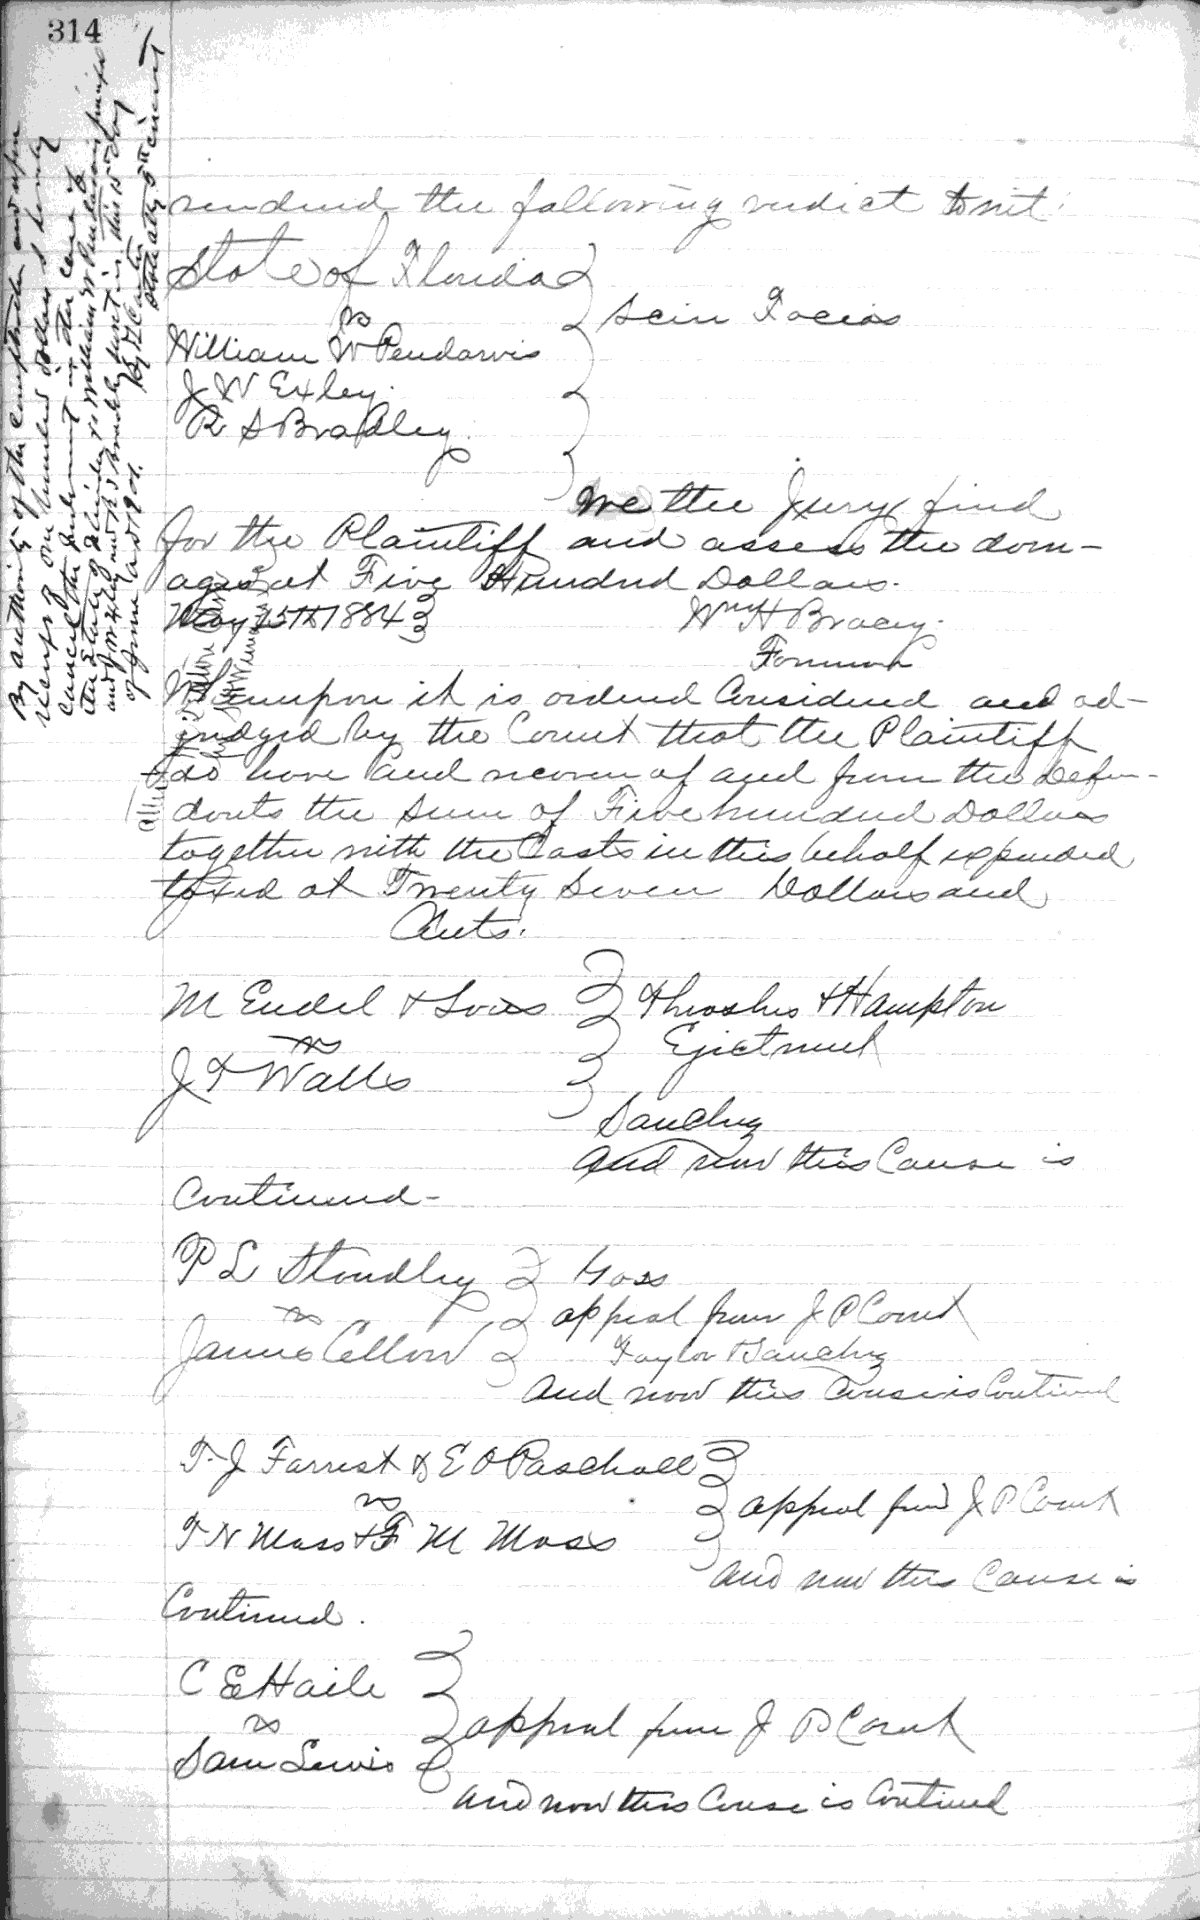 314
By authority of the Comptroller and upon
receipt of one hundred dollars I hereby
cancel the judgment in the case of
the State of Florida vs William W Pendarvis principal
and J W Exley and R S Bradley sureties this 15 day
of June AD 1901.
State atty 5th circuit
rendered the following verdict to wit:
State of Florida
vs
Scire Facias
William W Pendarvis
J W Exley.
R S Bradley.
We the Jury find
for the Plaintiff and assess the dam-
ages at Five Hundred Dollars.
May 15th 1884
Wm H Bracey.
Foreman
Whereupon it is ordered Considered and ad-
judged by the Court that the Plaintiff
do have and recover of and from the Defen-
dants the Sum of Five hundred Dollars
together with the Costs in this behalf expended
taxed at Twenty Seven Dollars and
Cents.
M Endel & Sons
Thrasher & Hampton
vs
Ejectment
J T Walls
Sanchez
And now this Cause is
Continued-
P L Standley
Goss
vs
appeal from J P Court
James Cellow
Taylor & Sanchez
And now this Cause is Continued
T. J Forrest & E O Paschall
vs
appeal from J P Court
T N Moss & F M Moss
And now this Cause is
Continued.
C E Haile
vs
appeal from J P Court
Sam Lewis
And now this Cause is Continued